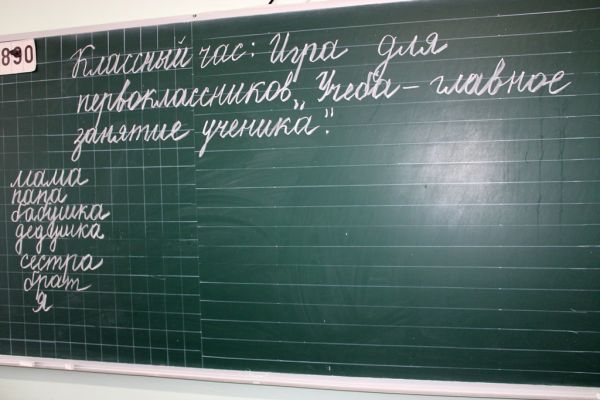 890
Классный час: Игра для
первоклассников „Учеба – главное
занятие ученика".
мама
папа
бабушка
дедушка
сестра
брат
я